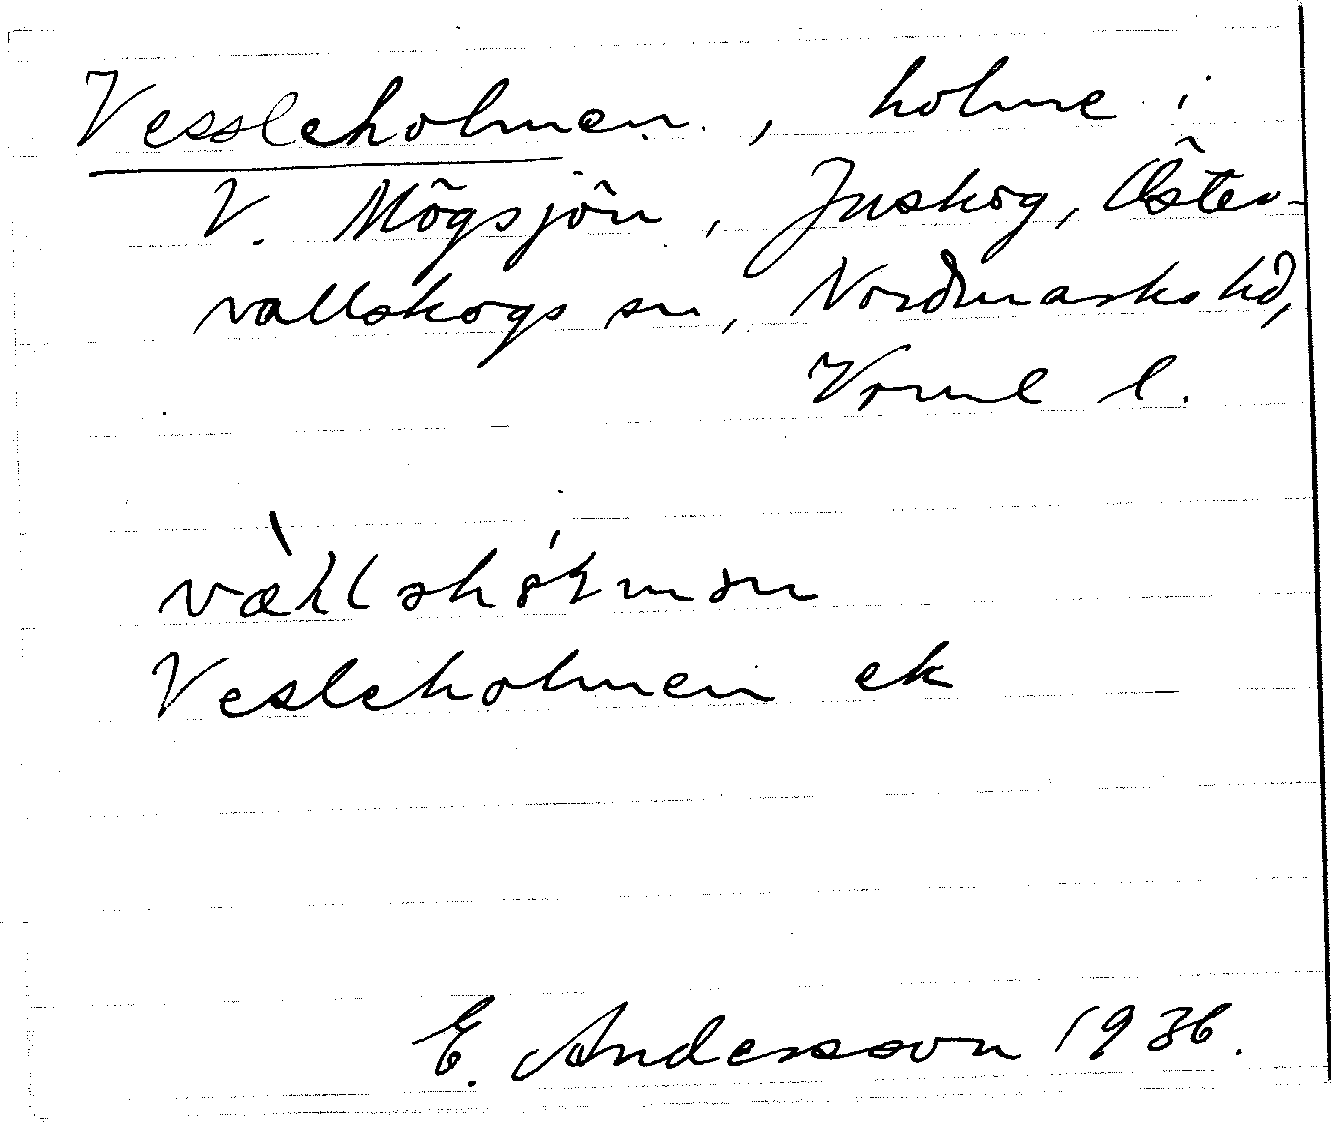 Vessleholmen, holme i
V. Mögsjön, Juskog, Öster-
vallskogs sn, Nordmarks hd,
Vrml l.
Vesleholmen ek
E. Andersson 1936.